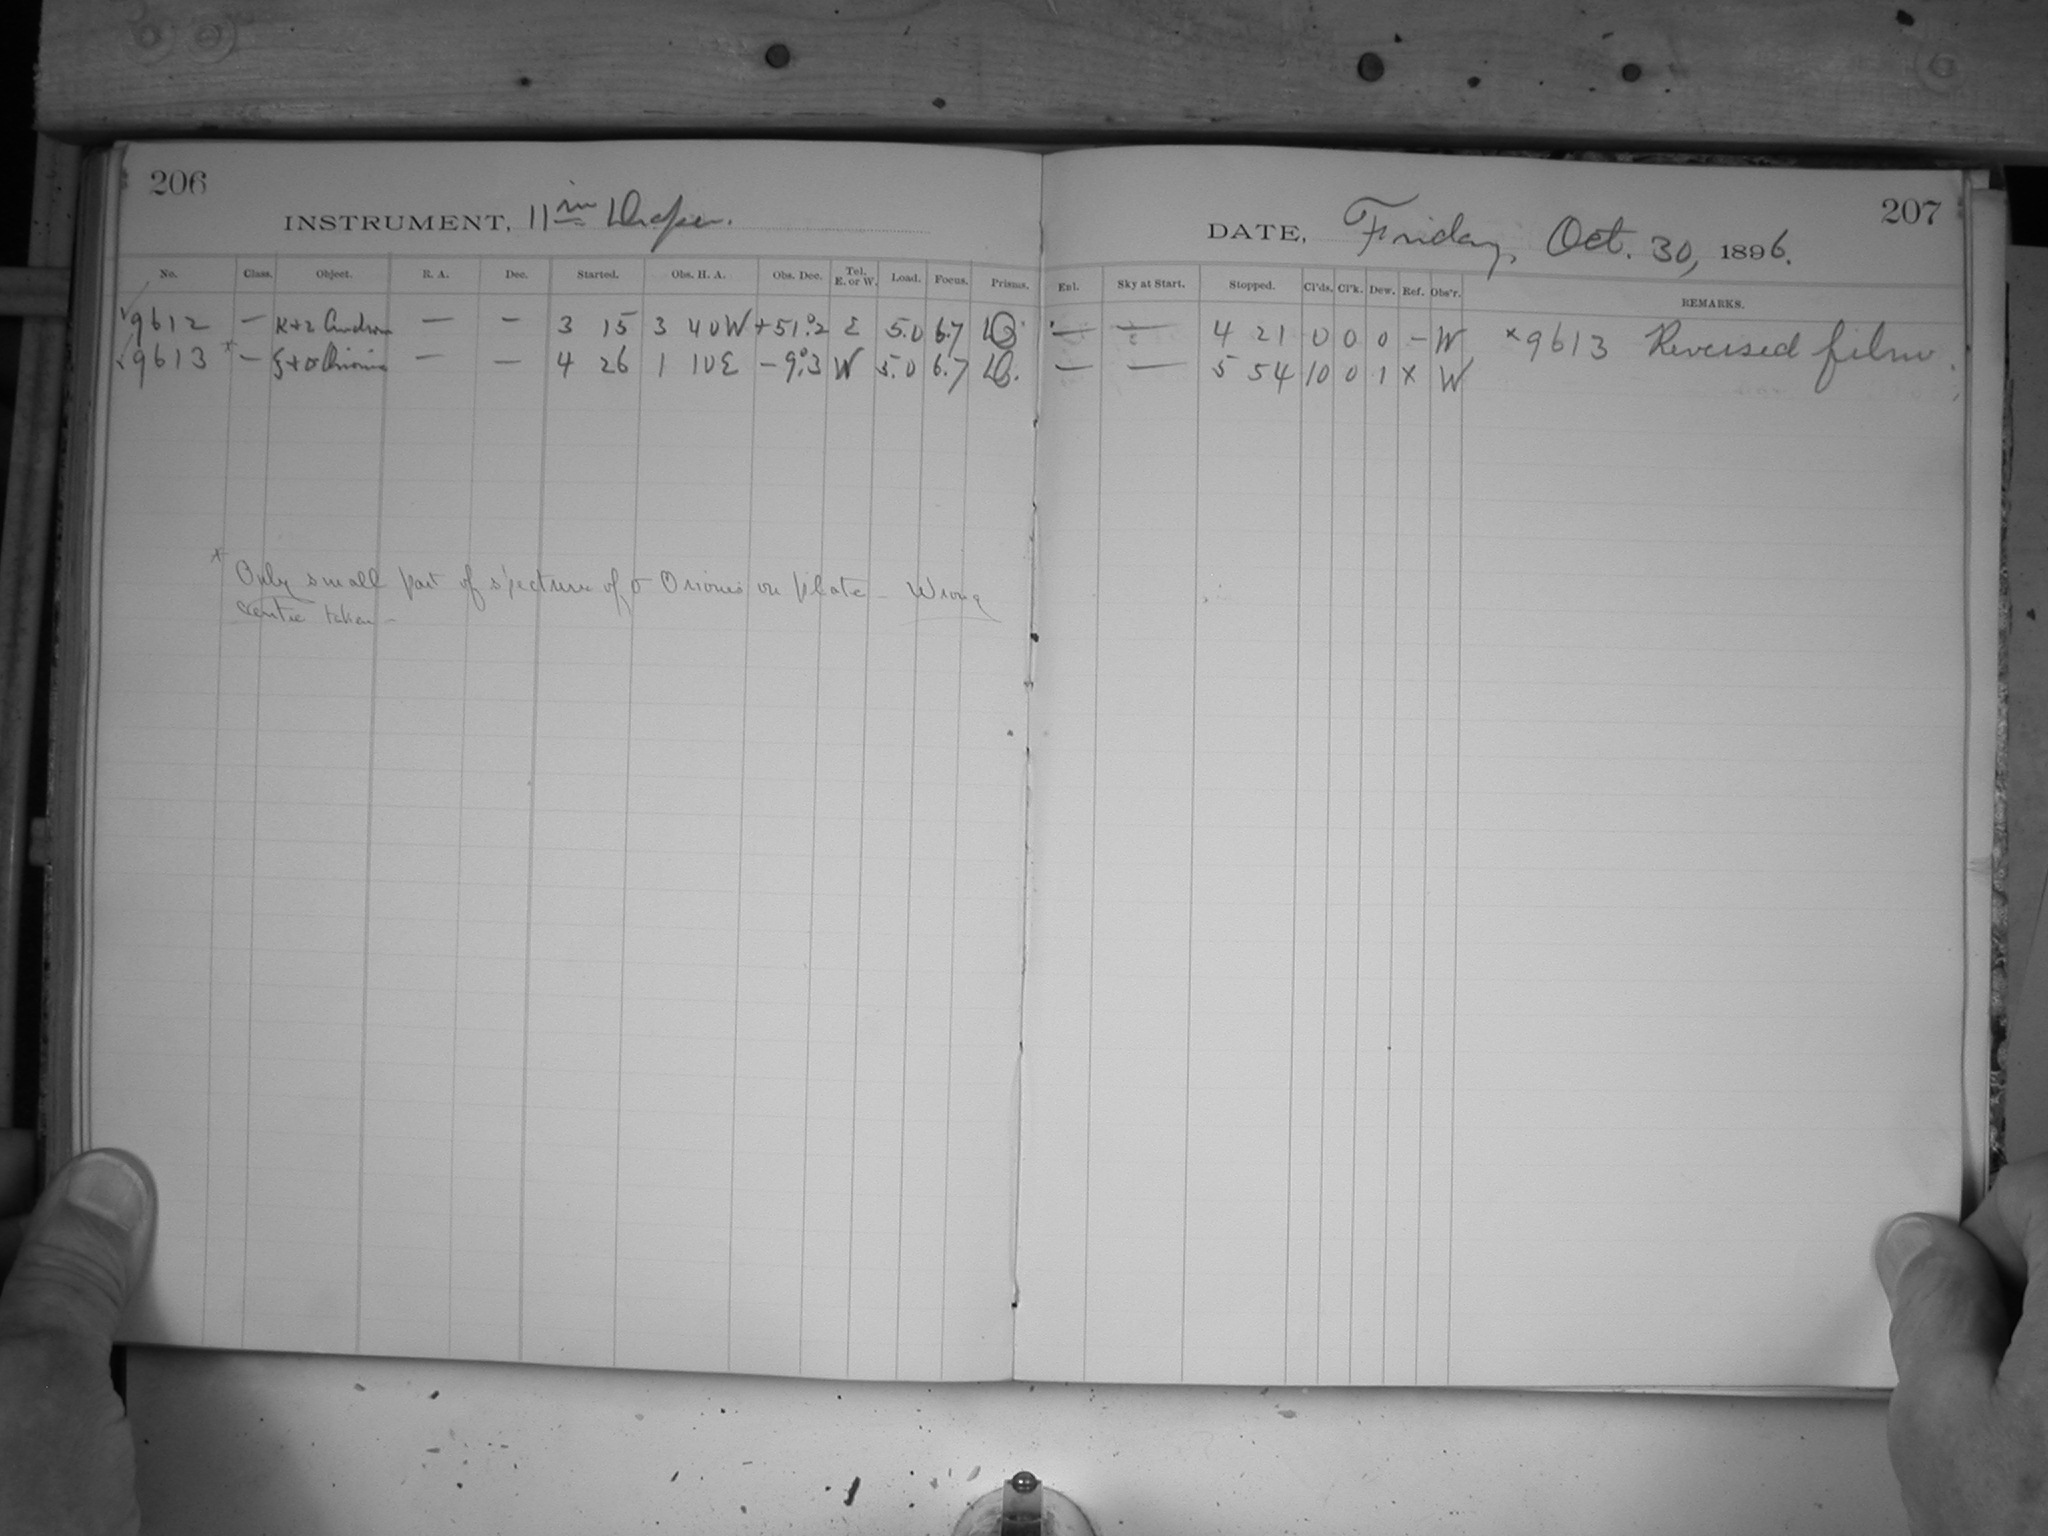 206
INSTRUMENT, 11 in Draper.
No. Class. Object. R. A. Dec. Started. Obs. H. A. Obs. Dec. Tel. E. or W. Load. Focus. Prisms.
9612 — — — 3 15 3 40W +51°.2 E 5.0 6.7
9613 x — Orionis — — 4 26 1 10E -9°.3 W 5.0 6.7
x Only small part of spectrum of σ Orionis on plate - Wrong
centre taken -
207
DATE, Friday, Oct. 30, 1896.
Enl. Sky at Start. Stopped. Cl'ds. Cl'k. Dew. Ref. Obs'r. REMARKS.
— — 4 21 0 0 0 - W x 9613 Reversed film.
— — 5 54 10 0 1 x W